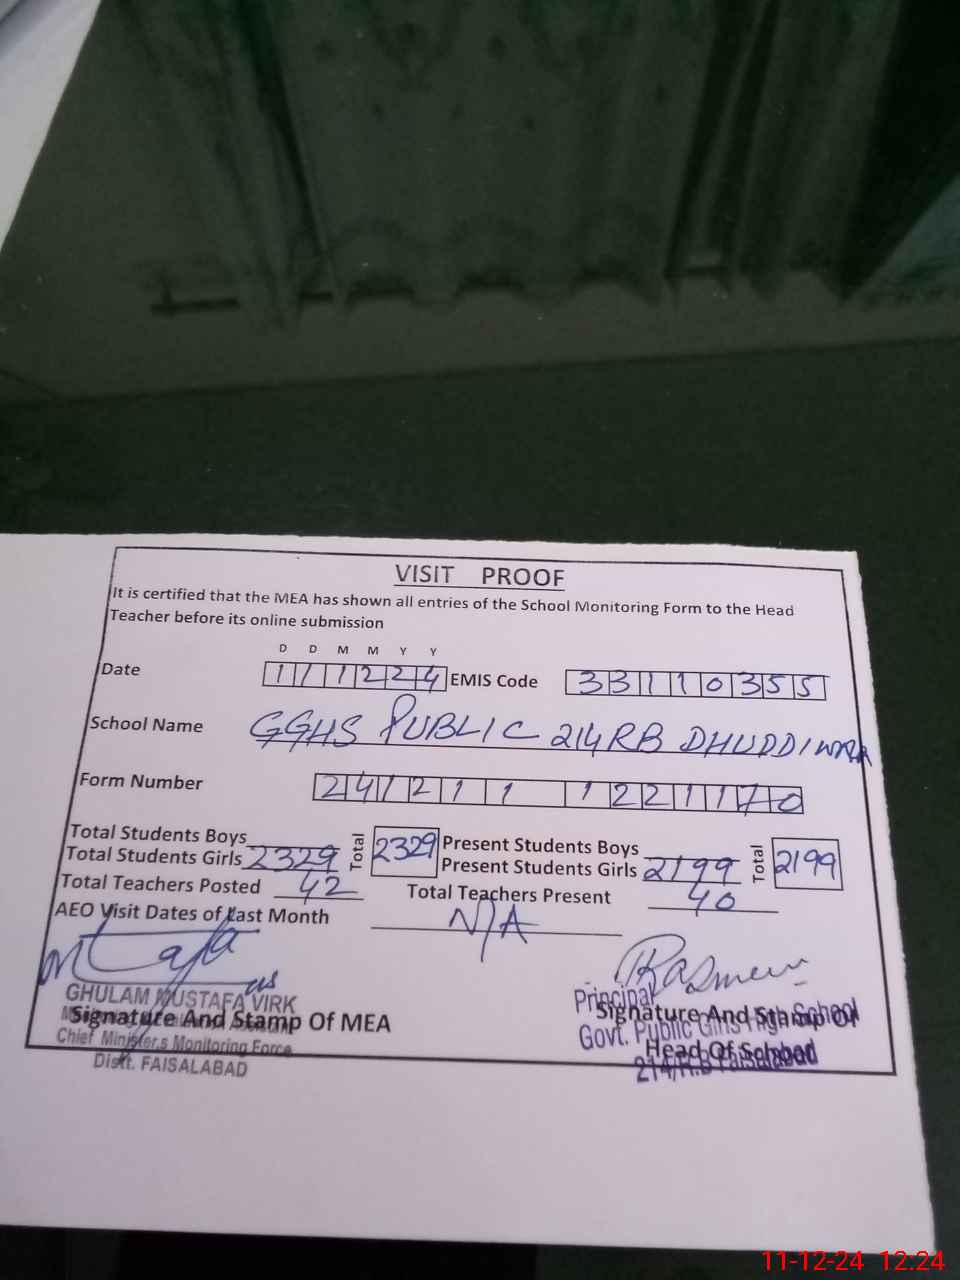 VISIT PROOF
It is certified that the MEA has shown all entries of the School Monitoring Form to the Head
Teacher before its online submission
D D M M Y Y
Date 111224 EMIS Code 33110355
School Name GGHS PUBLIC 214 RB DHUDDIWALA
Form Number
Total Students Boys
Total Students Girls 2329 Total 2329
Present Students Boys
Present Students Girls 2199 Total 2199
Total Teachers Posted 42 Total Teachers Present 40
AEO Visit Dates of Last Month N/A
GHULAM MUSTAFA VIRK
Signature And Stamp Of MEA
Chief Minister,s Monitoring Force
Distt. FAISALABAD
Principal
Signature And Stamp Of
Govt. Public Girls High School
Head Of School
214/R.B Faisalabad
11-12-24 12:24